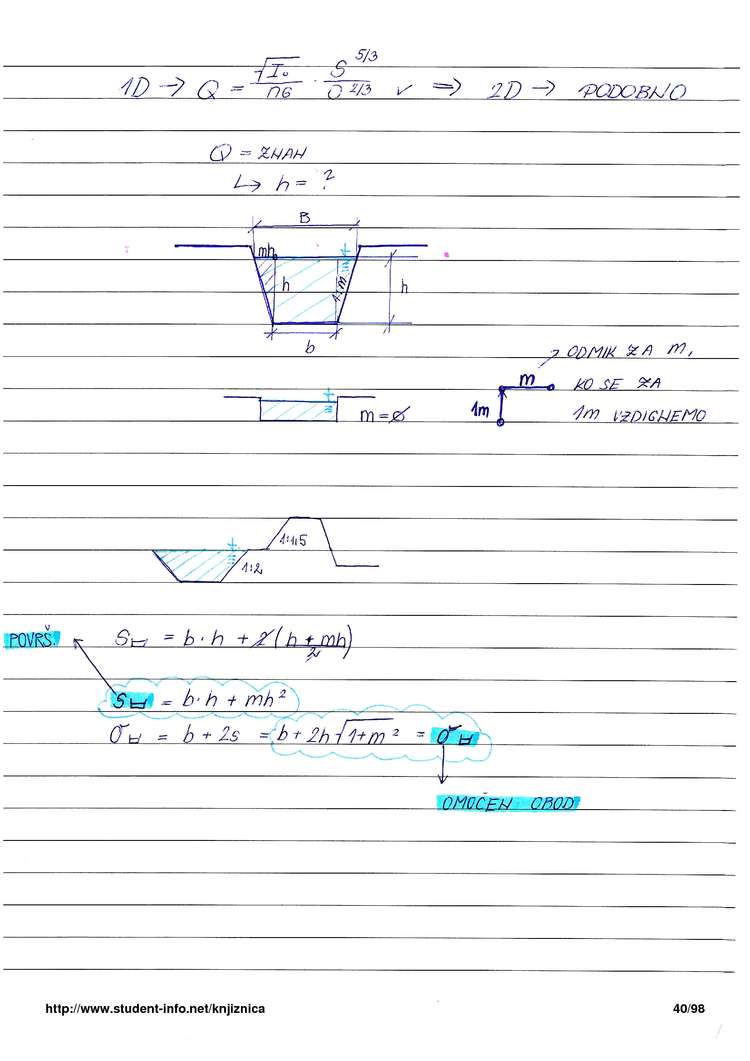 1D → Q = √I₀ / nG · S^5/3 / O^2/3 ✓ ⇒ 2D → PODOBNO
Q = ZNAN
↳ h = ?
B
mh
h
1:m
h
b
ODMIK ZA m,
m
KO SE ZA
1m
1m VZDIGNEMO
m = ∅
1:1,5
1:2
POVRŠ.
S = b · h + 2 (h + mh / 2)
S = b · h + mh²
O = b + 2s = b + 2h √1+m² = O
OMOČEN OBOD
http://www.student-info.net/knjiznica
40/98